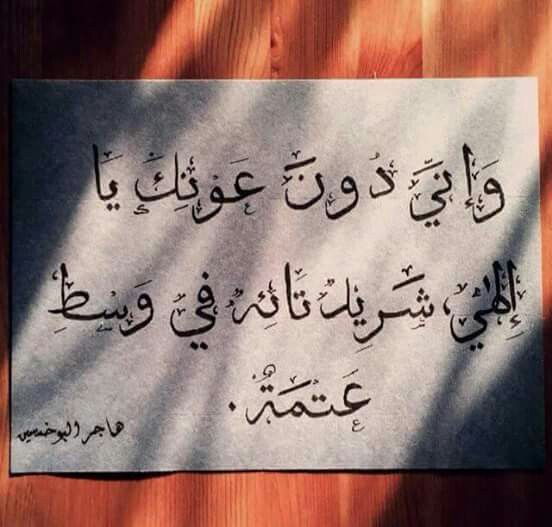 وَإنيَّ دُونَ عَوْنِكَ يَا
إِلهٰي، شَرِيدٌ تَائِهٌ في وَسَطِ
عَتْمَةٌ.
هاجر البوخمسين